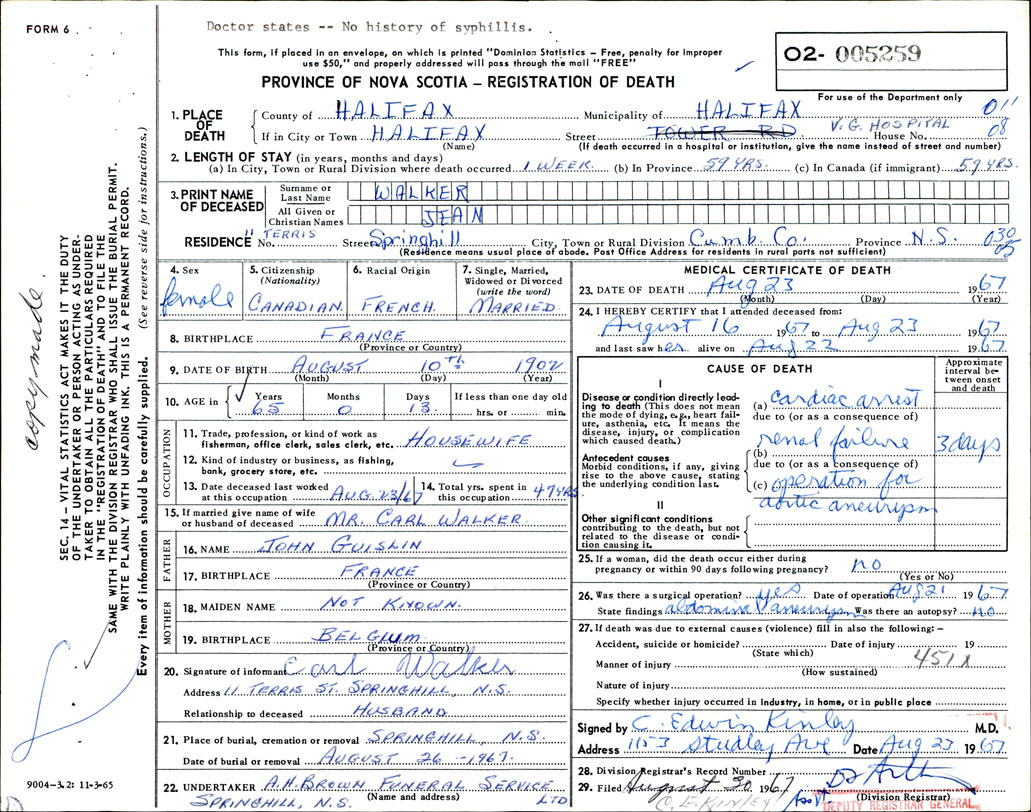 FORM 6
Doctor states -- No history of syphillis.
This form, if placed in an envelope, on which is printed "Dominion Statistics – Free, penalty for improper
use $50," and properly addressed will pass through the mail "FREE"
PROVINCE OF NOVA SCOTIA – REGISTRATION OF DEATH
O2- 005259
For use of the Department only
011
08
1. PLACE OF DEATH
County of HALIFAX Municipality of HALIFAX
If in City or Town HALIFAX Street TOWER RD V.G. HOSPITAL House No.
(Name) (If death occurred in a hospital or institution, give the name instead of street and number)
2. LENGTH OF STAY (in years, months and days)
(a) In City, Town or Rural Division where death occurred 1 WEEK. (b) In Province 59 YRS. (c) In Canada (if immigrant) 59 YRS.
3. PRINT NAME OF DECEASED
Surname or Last Name WALKER
All Given or Christian Names JEAN
RESIDENCE No. 11 TERRIS Street Springhill City, Town or Rural Division Cumb. Co. Province N.S. 030
05
(Residence means usual place of abode. Post Office Address for residents in rural parts not sufficient)
4. Sex female
5. Citizenship (Nationality) CANADIAN.
6. Racial Origin FRENCH.
7. Single, Married, Widowed or Divorced (write the word) MARRIED.
8. BIRTHPLACE FRANCE
(Province or Country)
9. DATE OF BIRTH AUGUST 10th 1902
(Month) (Day) (Year)
10. AGE in Years 65 Months 0 Days 13. If less than one day old hrs. or min.
OCCUPATION
11. Trade, profession, or kind of work as fisherman, office clerk, sales clerk, etc. HOUSEWIFE
12. Kind of industry or business, as fishing, bank, grocery store, etc.
13. Date deceased last worked at this occupation AUG. 23/67
14. Total yrs. spent in this occupation 47 YRS
15. If married give name of wife or husband of deceased MR. CARL WALKER.
FATHER
16. NAME JOHN GUISLIN
17. BIRTHPLACE FRANCE
(Province or Country)
MOTHER
18. MAIDEN NAME NOT KNOWN.
19. BIRTHPLACE BELGIUM.
(Province or Country)
20. Signature of informant Carl Walker
Address 11 TERRIS ST. SPRINGHILL, N.S.
Relationship to deceased HUSBAND
21. Place of burial, cremation or removal SPRINGHILL, N.S.
Date of burial or removal AUGUST 26 - 1967.
22. UNDERTAKER A.H. BROWN FUNERAL SERVICE LTD
SPRINGHILL, N.S. (Name and address)
MEDICAL CERTIFICATE OF DEATH
23. DATE OF DEATH Aug 23 1967
(Month) (Day) (Year)
24. I HEREBY CERTIFY that I attended deceased from:
August 16 1967 to Aug 23 1967
and last saw her alive on Aug 22 1967.
CAUSE OF DEATH
Approximate interval between onset and death
I
Disease or condition directly leading to death (This does not mean the mode of dying, e.g., heart failure, asthenia, etc. It means the disease, injury, or complication which caused death.)
(a) cardiac arrest
due to (or as a consequence of)
Antecedent causes
Morbid conditions, if any, giving rise to the above cause, stating the underlying condition last.
(b) renal failure 3 days
due to (or as a consequence of)
(c) operation for
aortic aneurysm
II
Other significant conditions
contributing to the death, but not related to the disease or condition causing it.
25. If a woman, did the death occur either during pregnancy or within 90 days following pregnancy? no
(Yes or No)
26. Was there a surgical operation? yes Date of operation Aug 21 1967
State findings abdominal aneurysm Was there an autopsy? no
27. If death was due to external causes (violence) fill in also the following: –
Accident, suicide or homicide? Date of injury 19
(State which)
451X
Manner of injury
(How sustained)
Nature of injury
Specify whether injury occurred in industry, in home, or in public place
Signed by C. Edwin Kinley M.D.
Address 1153 Studley Ave Date Aug 23 1967
28. Division Registrar's Record Number
29. Filed August 30 1967
(Division Registrar)
C. E. KINLEY
DEPUTY REGISTRAR GENERAL
SEC. 14 – VITAL STATISTICS ACT MAKES IT THE DUTY
OF THE UNDERTAKER OR PERSON ACTING AS UNDER-
TAKER TO OBTAIN ALL THE PARTICULARS REQUIRED
IN THE "REGISTRATION OF DEATH" AND TO FILE THE
SAME WITH THE DIVISION REGISTRAR WHO SHALL ISSUE THE BURIAL PERMIT.
WRITE PLAINLY WITH UNFADING INK. THIS IS A PERMANENT RECORD.
Every item of information should be carefully supplied. (See reverse side for instructions.)
copy made
9004-3.2: 11-3-65